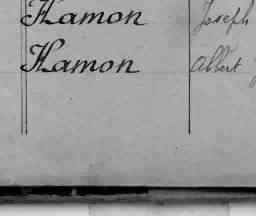 Hamon Joseph
Hamon Albert